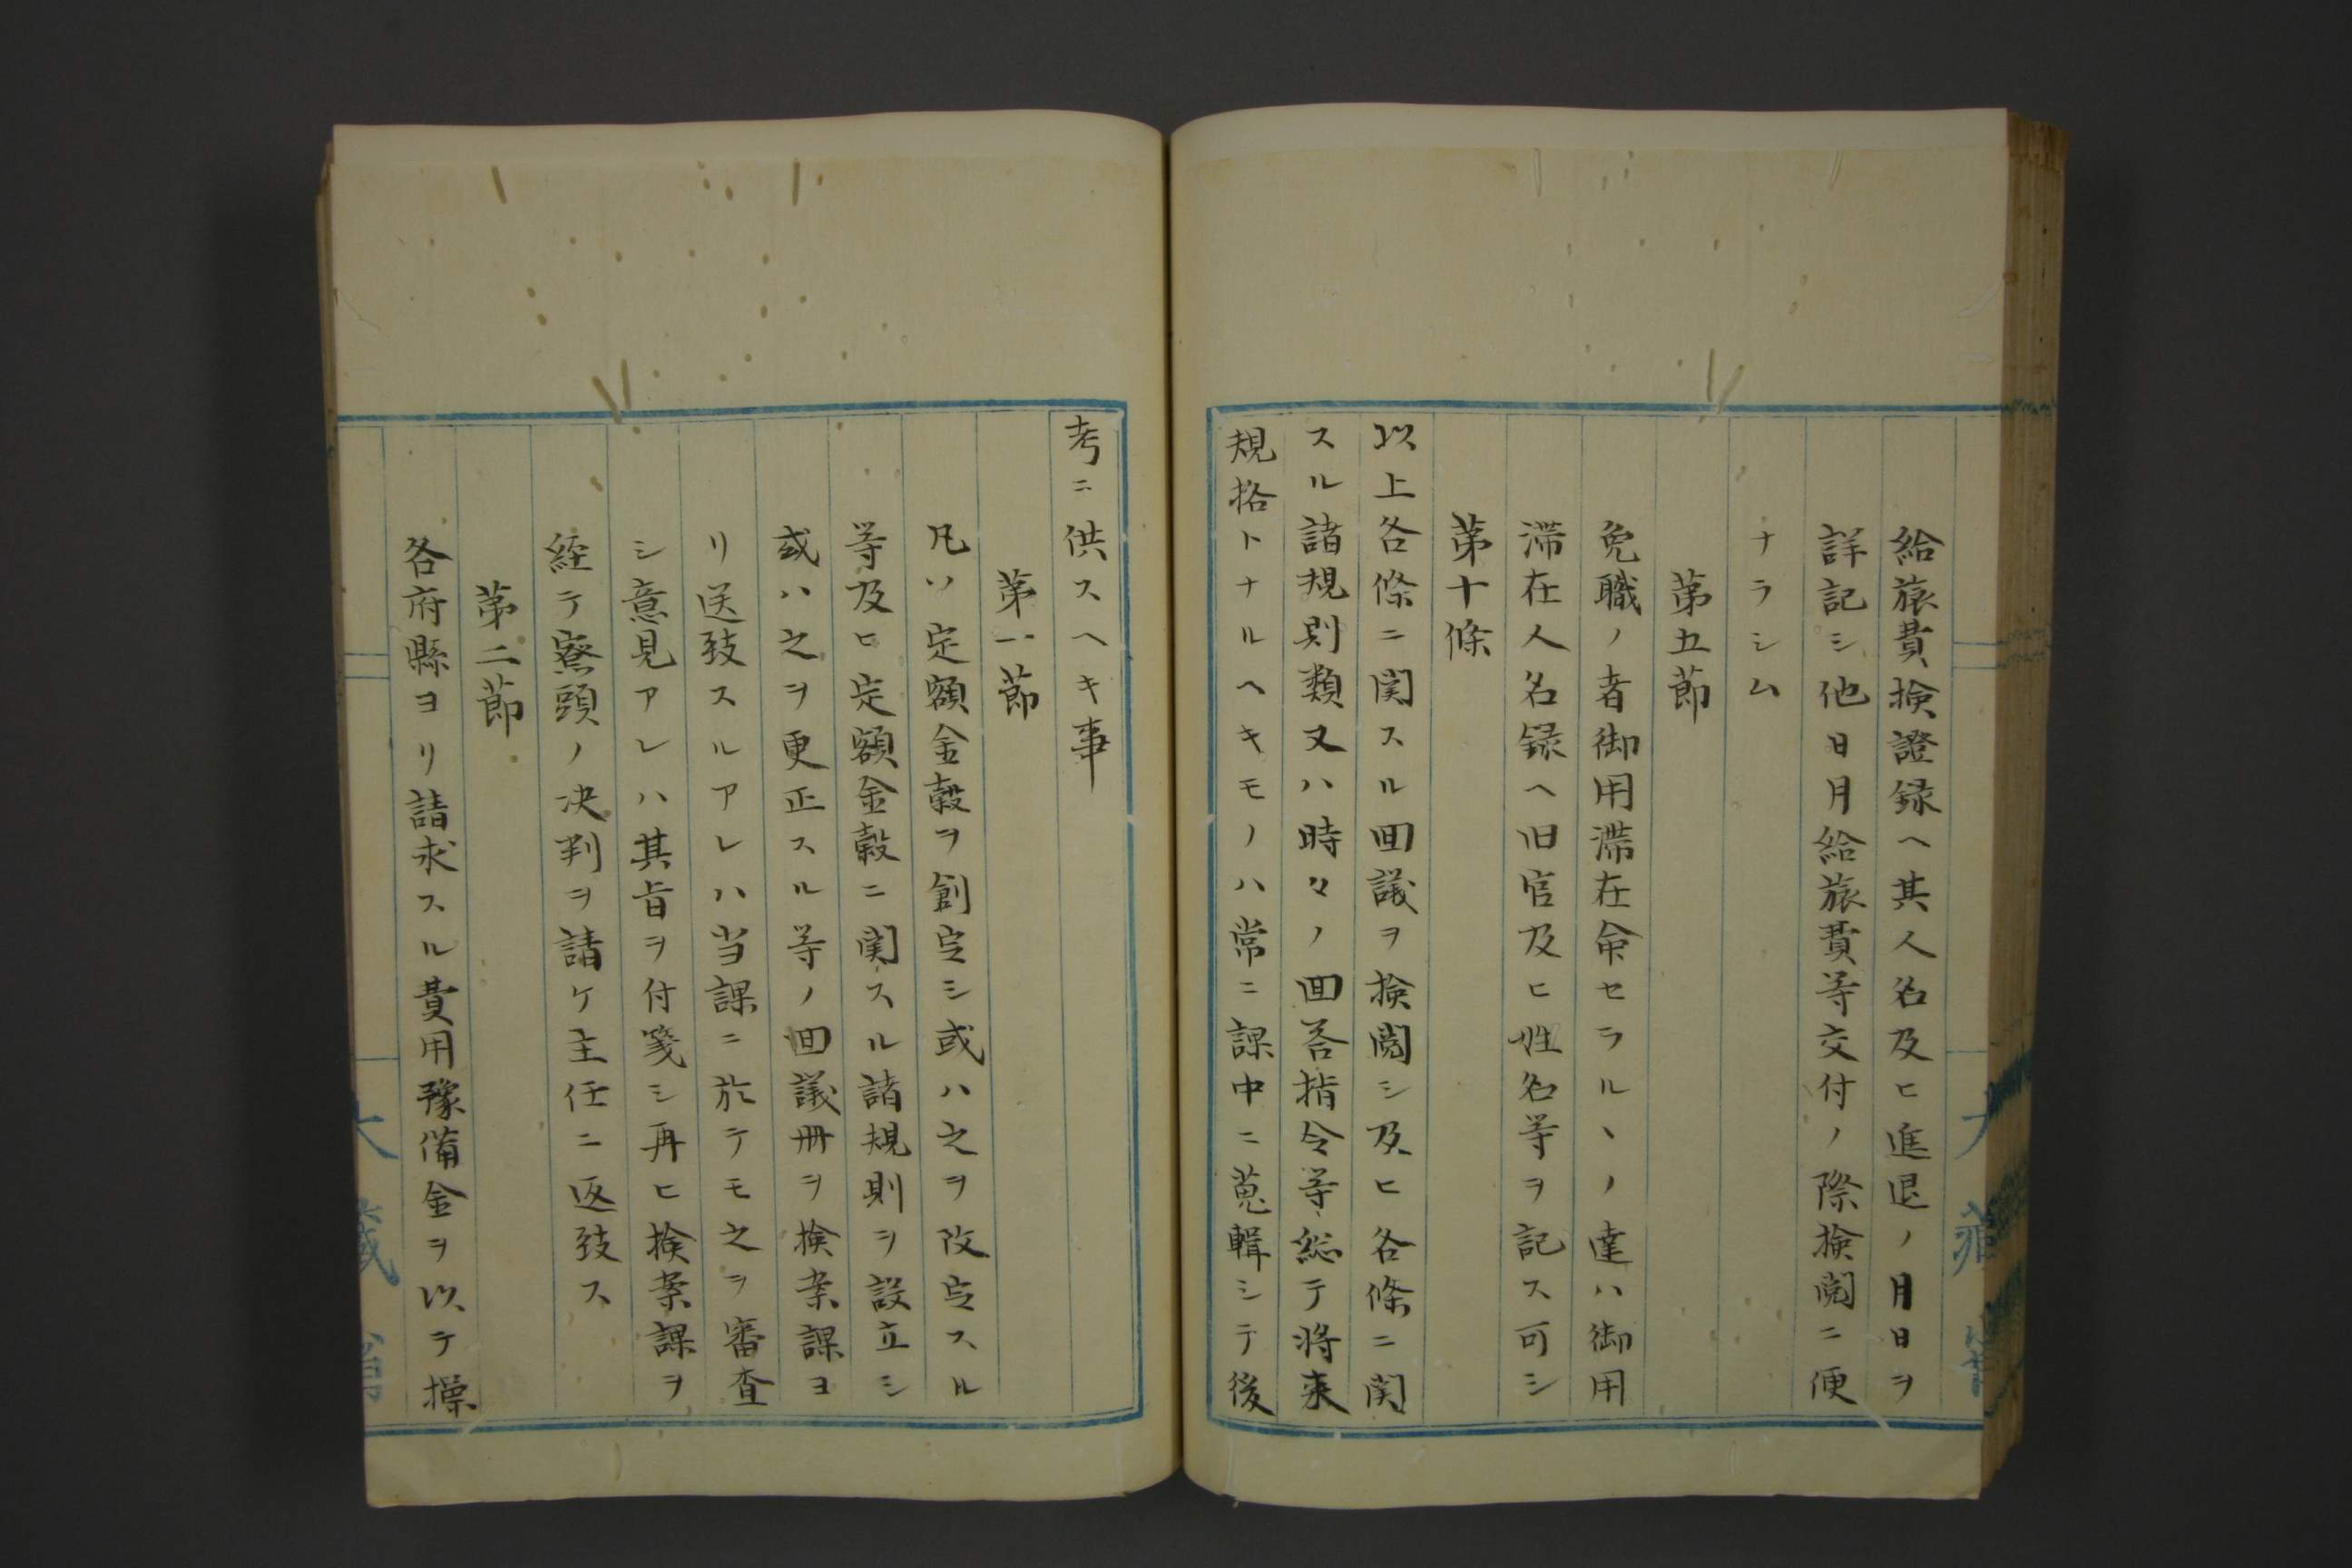 給旅費検證録ヘ其人名及ヒ進退ノ月日ヲ
詳記シ他日月給旅費等交付ノ際撿閲ニ便
ナラシム
第五節
免職ノ者御用滞在命セラルヽノ達ハ御用
滞在人名録ヘ旧官及ヒ姓名等ヲ記ス可シ
第十條
以上各條ニ関スル回議ヲ撿閲シ及ヒ各條ニ関
スル諸規則類又ハ時々ノ回答指令等総テ将来
規格トナルヘキモノハ常ニ課中ニ蒐輯シテ後
考ニ供スヘキ事
第一節
凡ソ定額金穀ヲ創定シ或ハ之ヲ改定スル
等及ヒ定額金穀ニ関スル諸規則ヲ設立シ
或ハ之ヲ更正スル等ノ回議冊ヲ検案課ヨ
リ送致スルアレハ当課ニ於テモ之ヲ審査
シ意見アレハ其旨ヲ付箋シ再ヒ検案課ヲ
経テ寮頭ノ决判ヲ請ケ主任ニ返致ス
第二節
各府縣ヨリ請求スル費用豫備金ヲ以テ操
大藏省